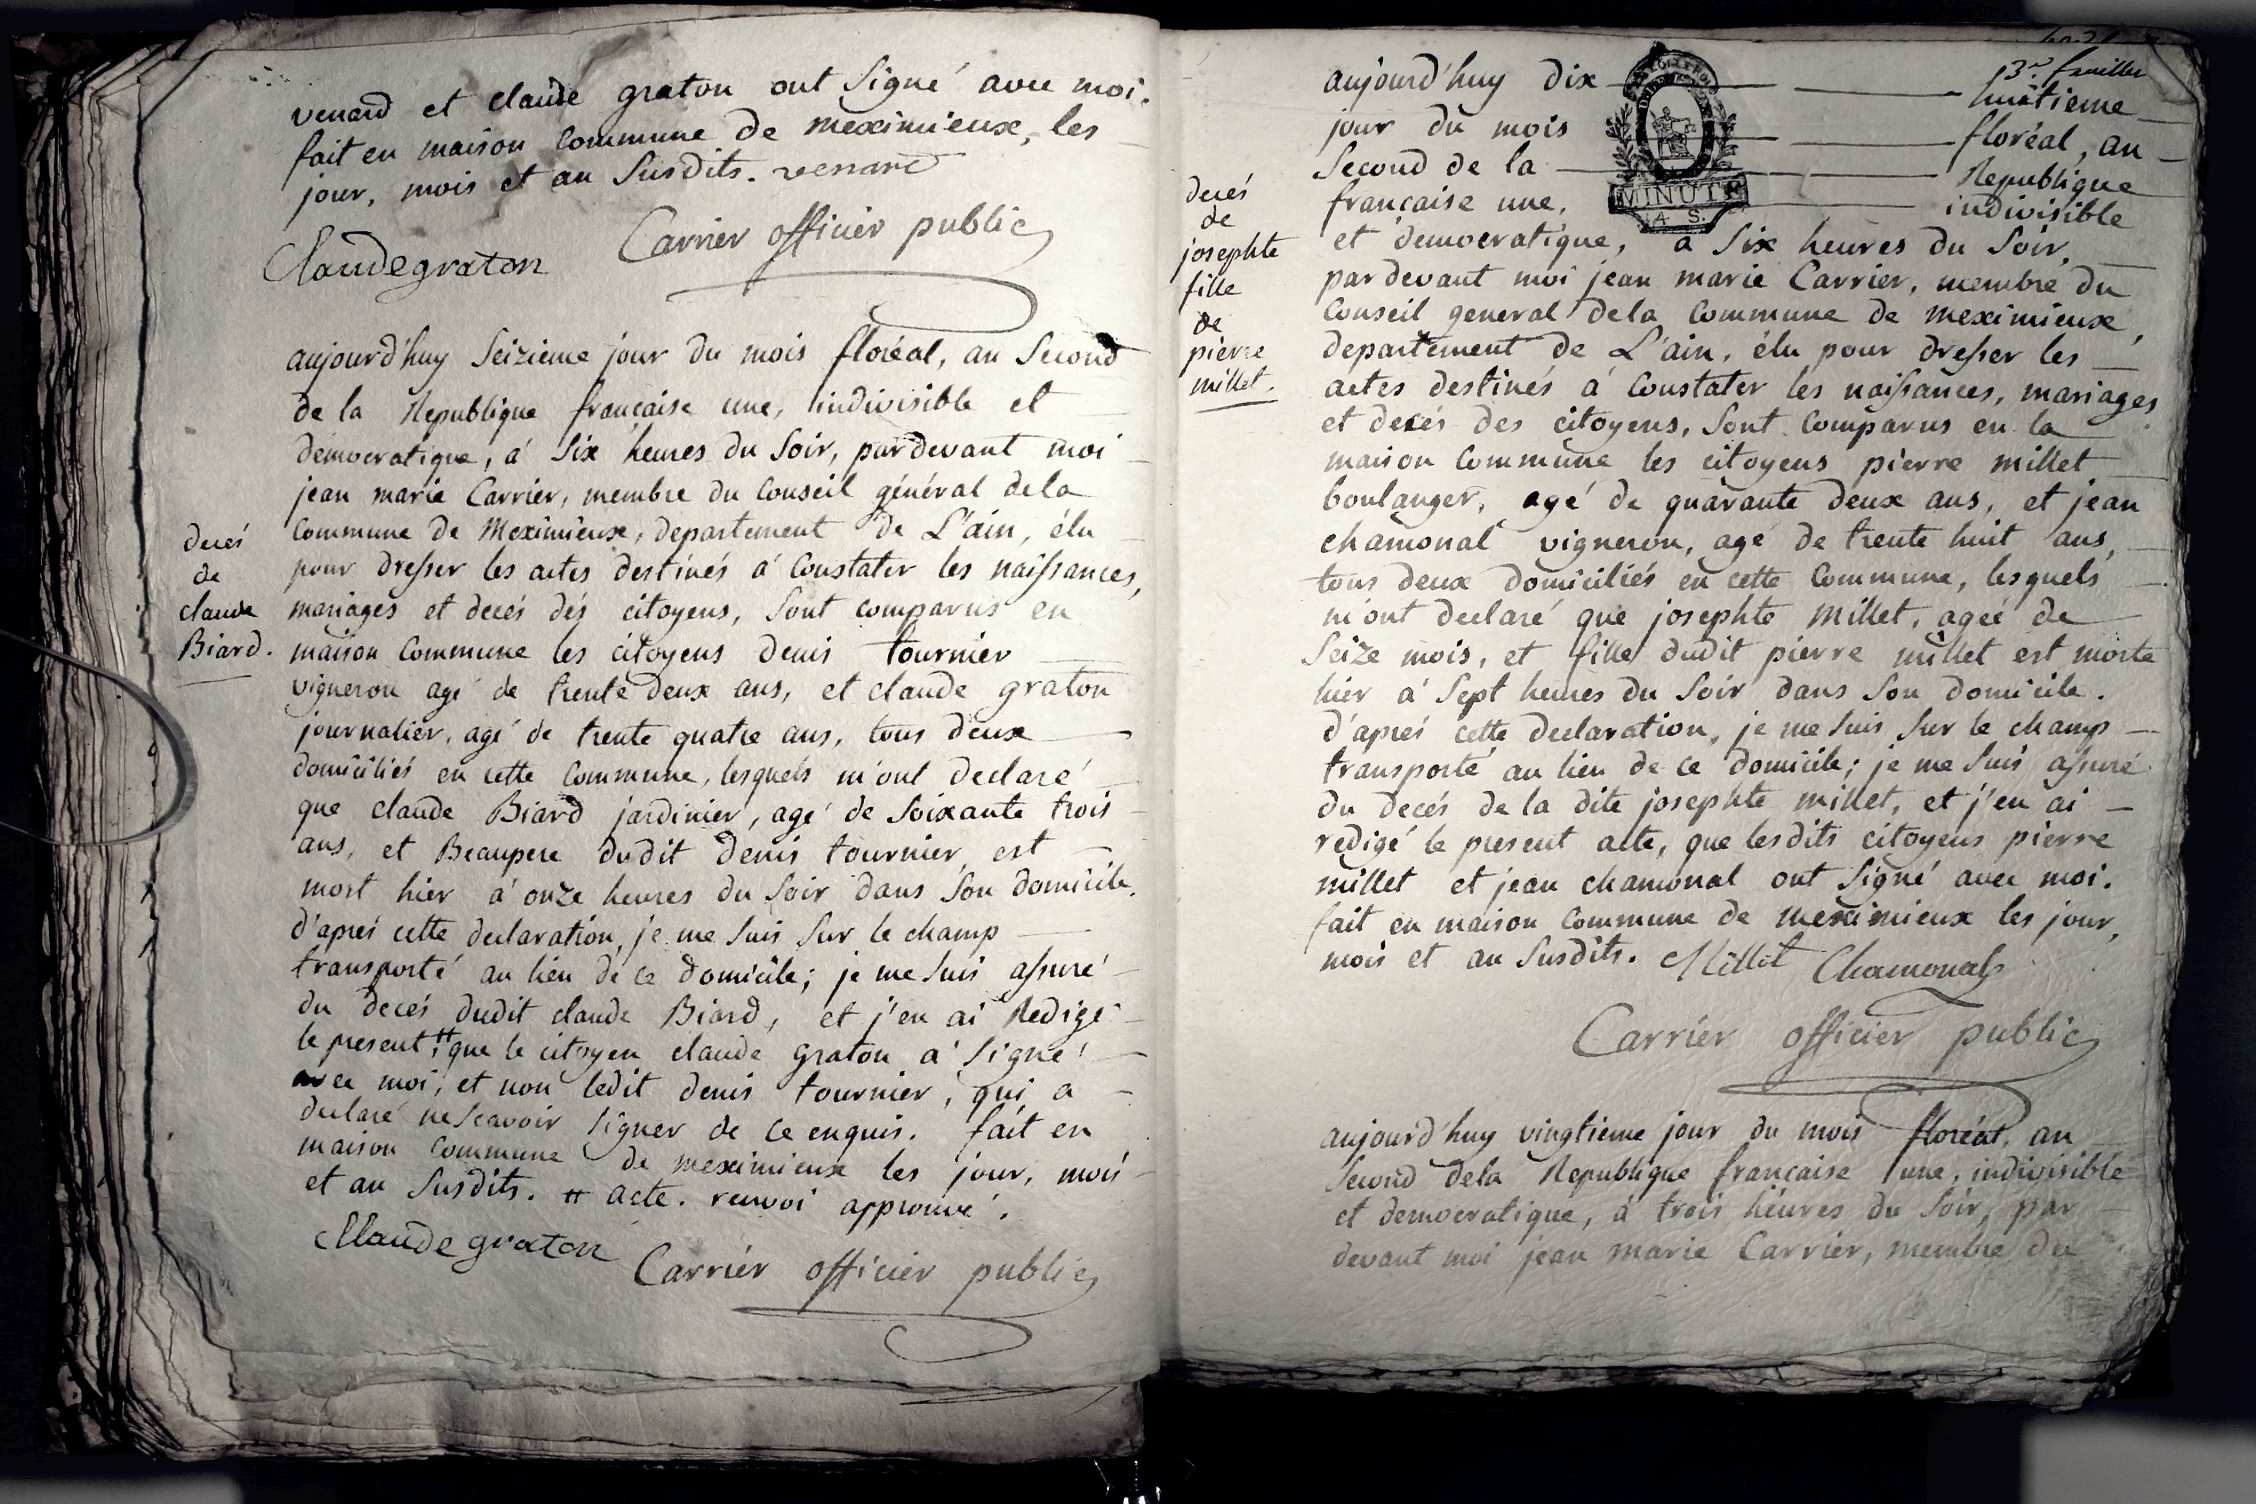 venard et claude graton ont signé avec moi.
fait en maison commune de meximieux, les
jour, mois et an susdits. venard
Claudegraton Carrier officier public
aujourd'huy seizieme jour du mois floréal, an second
de la Republique française une, indivisible et
démocratique, á six heures du soir, pardevant moi
jean marie Carrier, membre du conseil général dela
commune de Meximieux, departement de L'ain, élu
pour dresser les actes destinés á constater les naissances,
mariages et decés des citoyens, sont comparus en
maison commune les citoyens denis tournier
vigneron agé de trente deux ans, et claude graton
journalier, agé de trente quatre ans, tous deux
domiciliés en cette commune, lesquels m'ont declaré
que claude Biard jardinier, agé de soixante trois
ans, et Beaupere dudit denis tournier, est
mort hier á onze heures du soir dans son domicile.
d'aprés cette declaration, je me suis sur le champ
transporté au lieu de ce domicile; je me suis assuré
du decés dudit claude Biard, et j'en ai Redigé
le present, # que le citoyen claude graton a signé
avec moi, et non ledit denis tournier, qui a
declaré ne scavoir signer de ce enquis. fait en
maison commune de meximieux les jour, mois
et an susdits. # acte. renvoi approuvé.
Claude graton Carrier officier public
decés
de
claude
Biard.
13.e feuillet
aujourd'huy dix huitieme
MINUTE
4 S.
jour du mois floréal, an
second de la Republique
française une, indivisible
et democratique, á six heures du soir,
pardevant moi jean marie Carrier, membre du
conseil general dela commune de meximieux,
departement de L'ain, élu pour dresser les
actes destinés á constater les naissances, mariages
et decés des citoyens, sont comparus en la
maison commune les citoyens pierre millet
boulanger, agé de quarante deux ans, et jean
chamonal vigneron, agé de trente huit ans,
tous deux domiciliés en cette commune, lesquels
m'ont declaré que josephte Millet, ageé de
seize mois, et fille dudit pierre millet est morte
hier á sept heures du soir dans son domicile.
d'aprés cette declaration, je me suis sur le champ
transporté au lieu de ce domicile; je me suis assuré
du decés de la dite josephte millet, et j'en ai
redigé le present acte, que lesdits citoyens pierre
millet et jean chamonal ont signé avec moi.
fait en maison commune de meximieux les jour,
mois et an susdits. Millet Chamonal
Carrier officier public
decés
de
josephte
fille
de
pierre
millet.
aujourd'huy vingtieme jour du mois floréal, an
second dela Republique française une, indivisible
et democratique, á trois heures du soir, par
devant moi jean marie Carrier, membre du